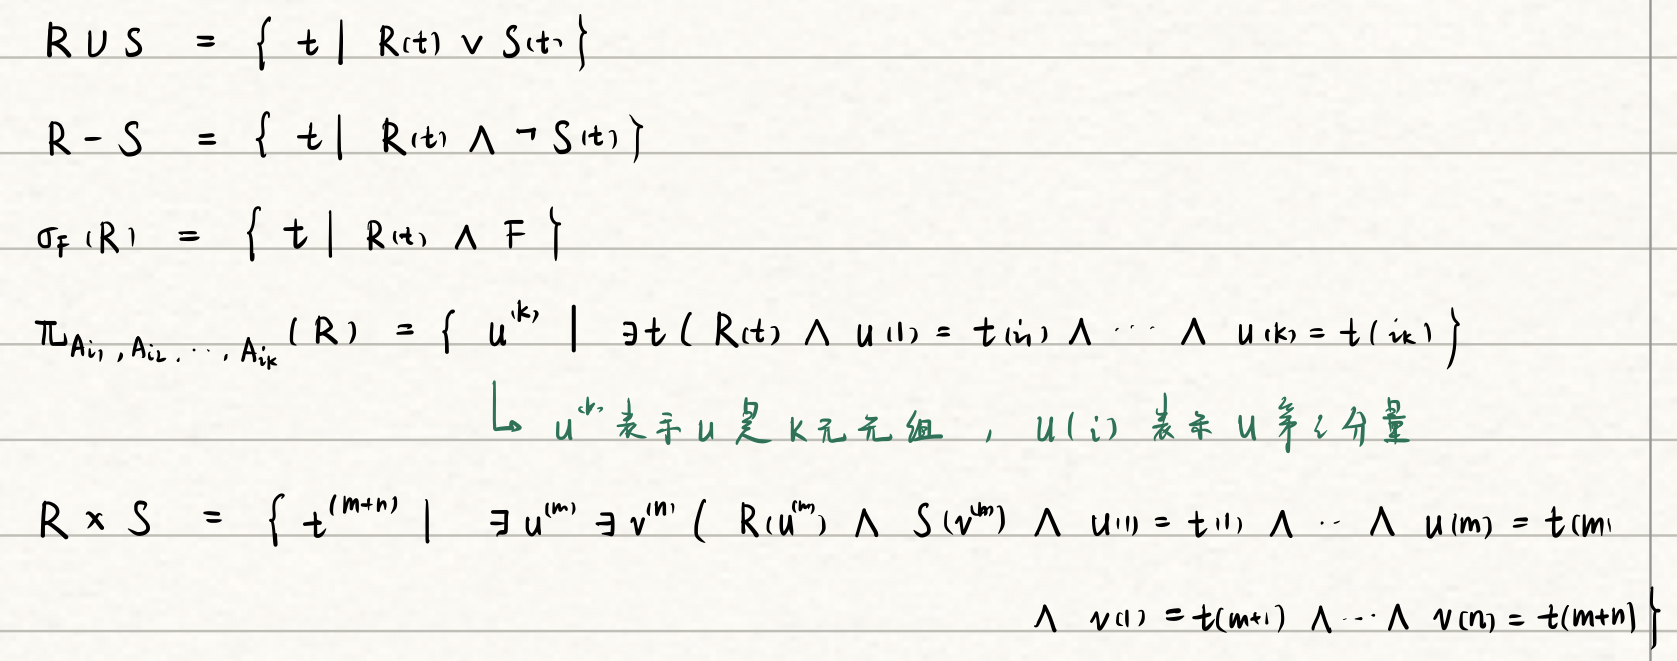 R ∪ S = { t | R(t) ∨ S(t) }
R - S = { t | R(t) ∧ ¬ S(t) }
σ_F (R) = { t | R(t) ∧ F }
π_{A_{i1}, A_{i2}, ..., A_{ik}} (R) = { u^{(k)} | ∃t ( R(t) ∧ u(1) = t(i_1) ∧ ... ∧ u(k) = t(i_k) }
↳ u^{(k)} 表示 u 是 k元元组 , u(i) 表示 u 第 i 分量
R × S = { t^{(m+n)} | ∃u^{(m)} ∃v^{(n)} ( R(u^{(m)}) ∧ S(v^{(m)}) ∧ u(1) = t(1) ∧ ... ∧ u(m) = t(m)
∧ v(1) = t(m+1) ∧ ... ∧ v(n) = t(m+n) }